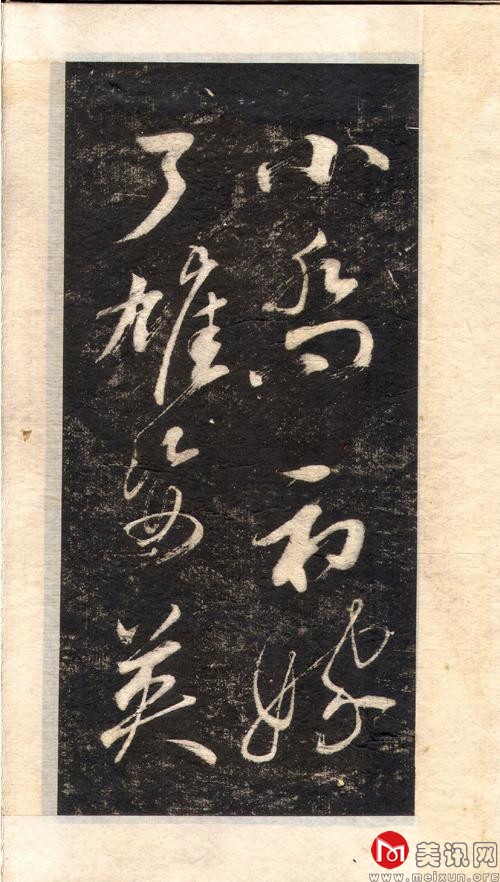 小喬初嫁
了雄姿英
美讯网
www.meixun.org